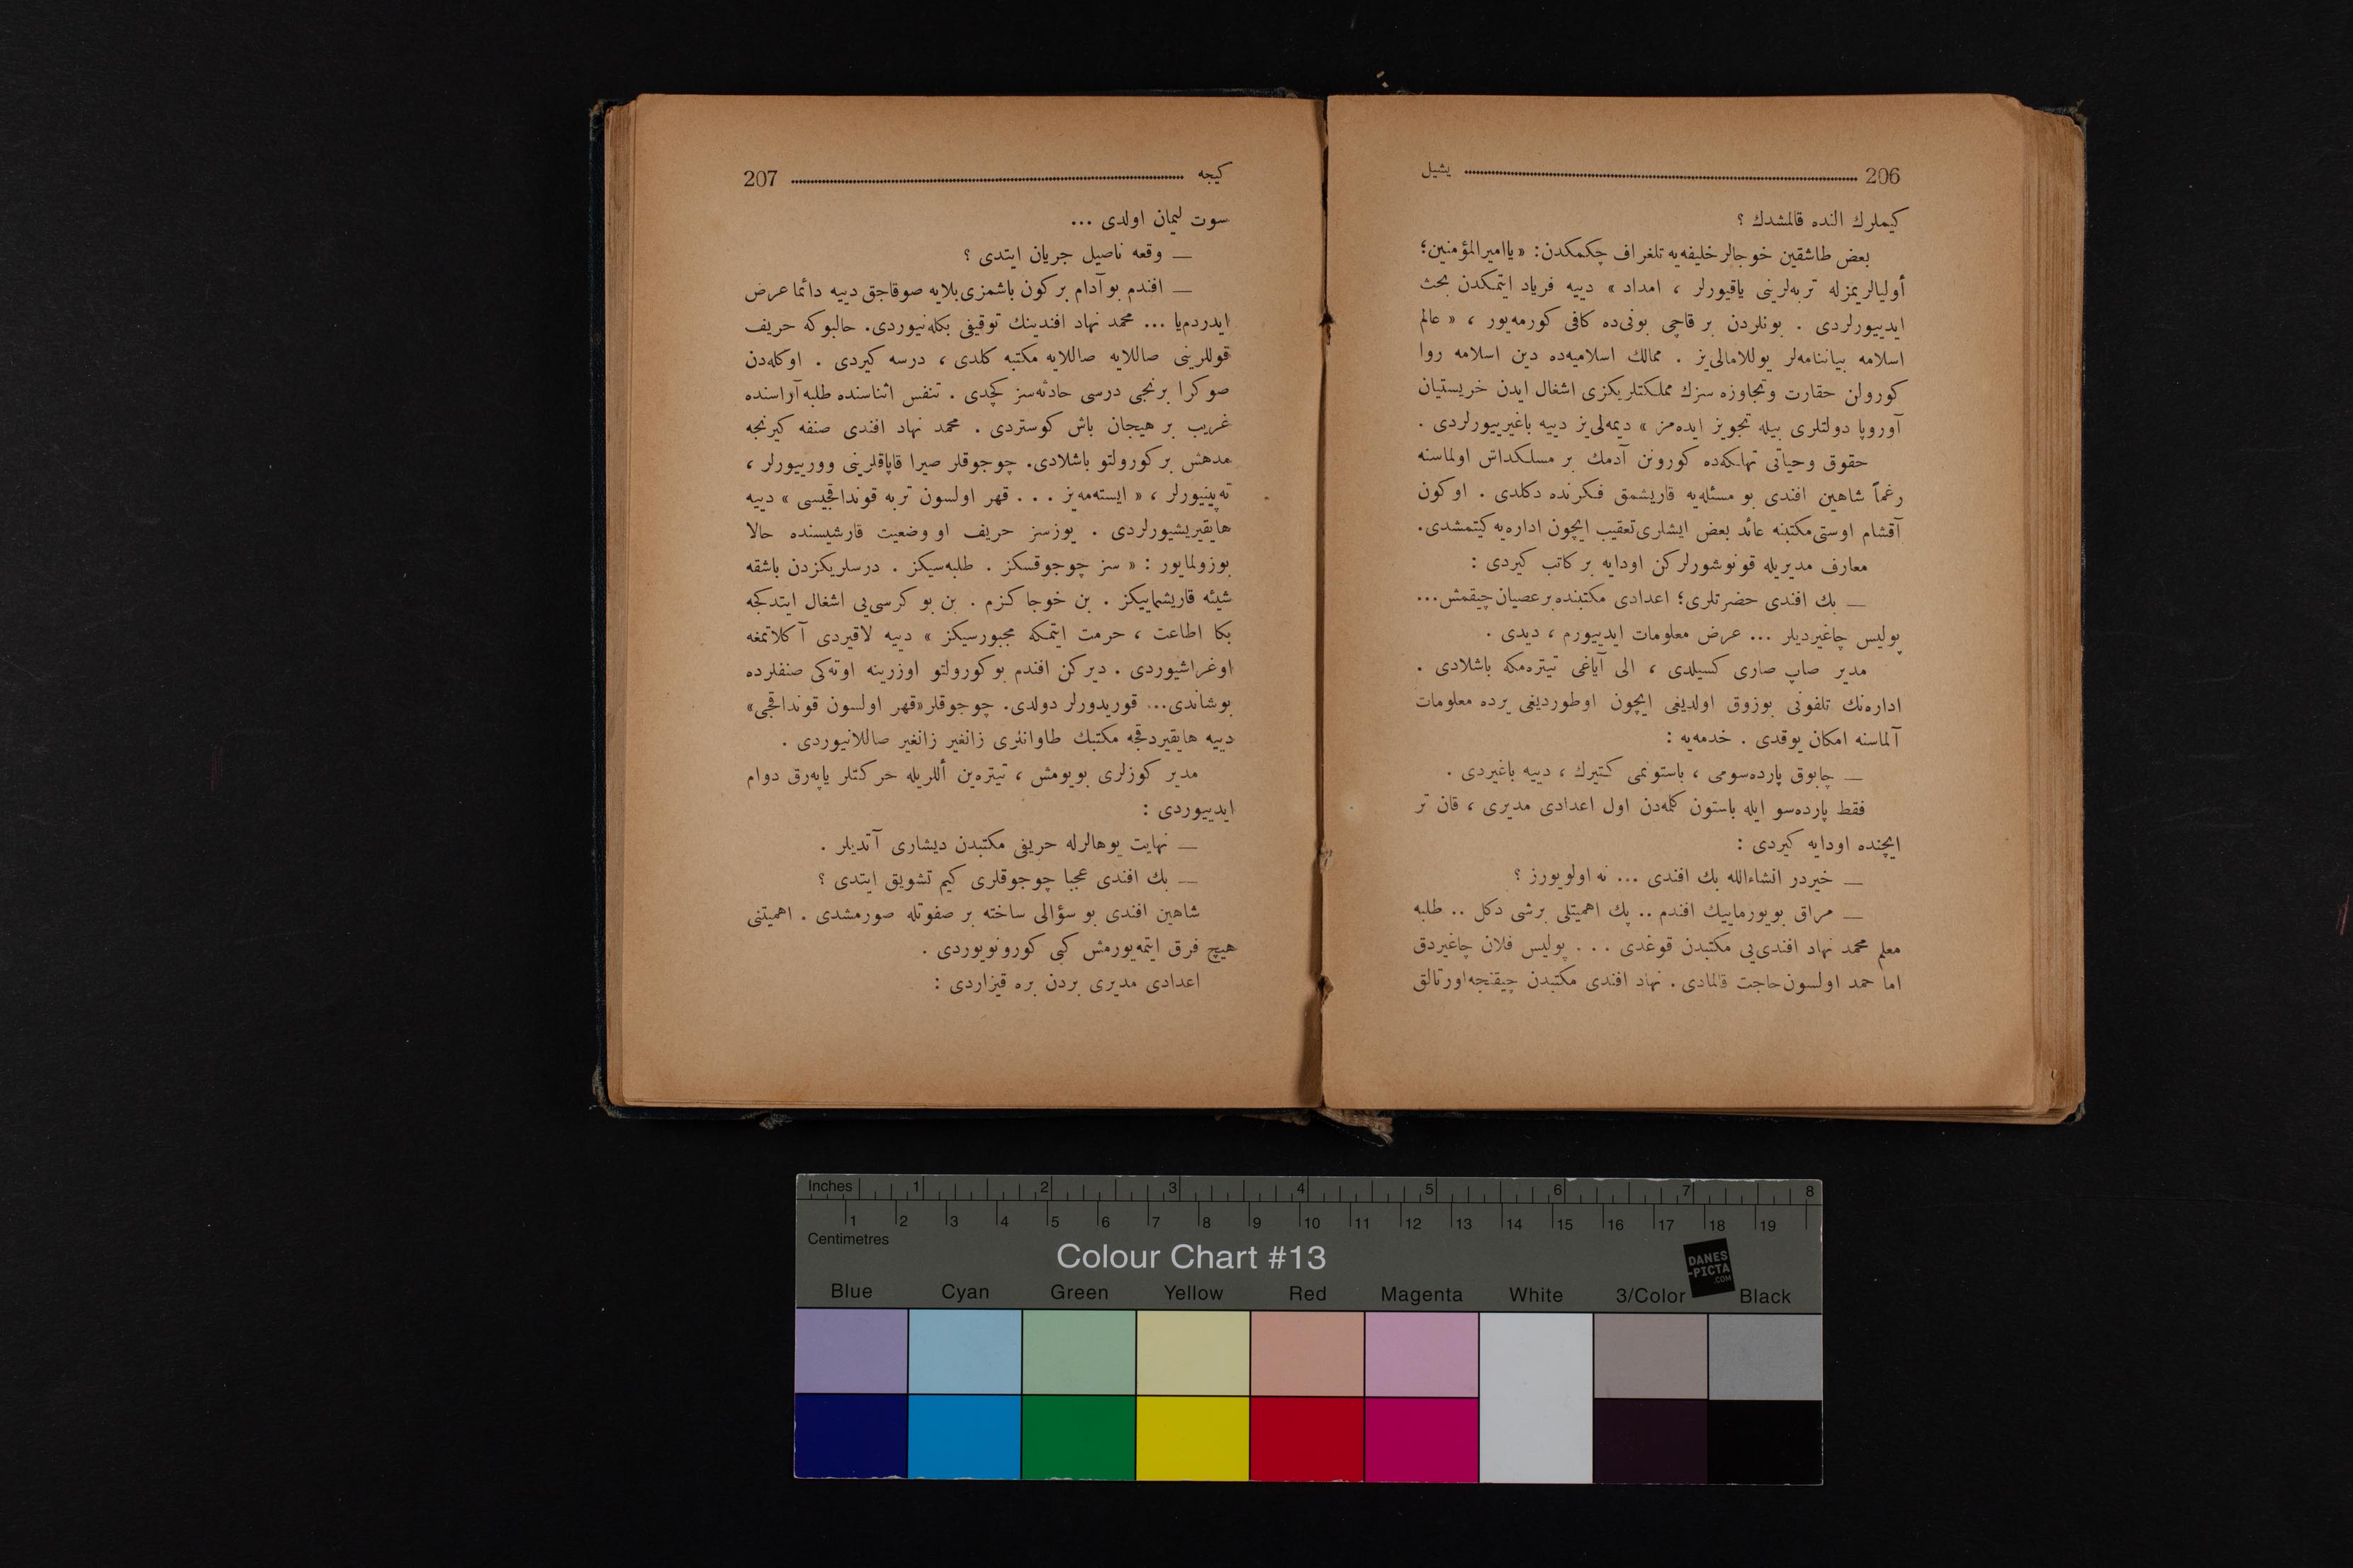 206 یشیل
كیملرك النده قالمشدك ؟
بعض طاشقین خوجالر خلیفه‌یه تلغراف چكمكدن: «یاامیرالمؤمنین؛
أولیالریمزله تربه‌لرینی یاقیورلر ، امداد» دییه فریاد ایتمكدن بحث
ایدییورلردی . بونلردن بر قاچی بونی‌ده كافی كورمه‌یور ، « عالم
اسلامه بیاننامه‌لر یوللامالی‌یز . ممالك اسلامیه‌ده دین اسلامه روا
كورولن حقارت وتجاوزه سزك مملكتلریكزی اشغال ایدن خریستیان
آوروپا دولتلری بیله تجویز ایده‌مز » دیمه‌لی‌یز دییه باغیرییورلردی .
حقوق وحیاتی تهلكه‌ده كورونن آدمك بر مسلكداش اولماسنه
رغماً شاهین افندی بو مسئله‌یه قاریشمق فكرنده دكلدی . اوكون
آقشام اوستی مكتبنه عائد بعض ایشلری تعقیب ایچون اداره‌یه كیتمشدی.
معارف مدیریله قونوشورلركن اودایه بر كاتب كیردی :
— بك افندی حضرتلری؛ اعدادی مكتبنده برعصیان چیقمش...
پولیس چاغیردیلر ... عرض معلومات ایدییورم ، دیدی .
مدیر صاپ صاری كسیلدی ، الی آیاغی تیتره‌مكه باشلادی .
اداره‌نك تلفونی بوزوق اولدیغی ایچون اوطوردیغی یرده معلومات
آلماسنه امكان یوقدی . خدمه‌یه :
— چابوق پارده‌سومی ، باستونمی كتیرك ، دییه باغیردی .
فقط پارده‌سو ایله باستون كلمه‌دن اول اعدادی مدیری ، قان تر
ایچنده اودایه كیردی :
— خیردر انشاءالله بك افندی ... نه اولویورز ؟
— مراق بویورماییك افندم .. پك اهمیتلی برشی دكل .. طلبه
معلم محمد نهاد افندی‌یی مكتبدن قوغدی . . . پولیس فلان چاغیردق
اما حمد اولسون حاجت قالمادی . نهاد افندی مكتبدن چیقنجه اورتالق
كیجه 207
سوت لیمان اولدی ...
— وقعه ناصیل جریان ایتدی ؟
— افندم بو آدام بر كون باشمزی بلایه صوقاجق دییه دائما عرض
ایدردم‌یا ... محمد نهاد افندینك توقیفی بكله‌نیوردی. حالبوكه حریف
قوللرینی صاللایه صاللایه مكتبه كلدی ، درسه كیردی . اوكله‌دن
صوكرا برنجی درسی حادثه‌سز كچدی . تنفس اثناسنده طلبه آراسنده
غریب بر هیجان باش كوستردی . محمد نهاد افندی صنفه كیرنجه
مدهش بر كورولتو باشلادی. چوجوقلر صیرا قاپاقلرینی وورییورلر ،
ته‌پینیورلر ، « ایسته‌مه‌یز . . . قهر اولسون تربه قونداقجیسی » دییه
هایقیریشیورلردی . یوزسز حریف او وضعیت قارشیسنده حالا
بوزولمایور : « سز چوجوقسكز . طلبه‌سیكز . درسلریكزدن باشقه
شیئه قاریشماییكز . بن خوجاكزم . بن بو كرسی‌یی اشغال ایتدكجه
بكا اطاعت ، حرمت ایتمكه مجبورسیكز » دییه لاقیردی آكلاتمغه
اوغراشیوردی . دیركن افندم بو كورولتو اوزرینه اوته‌كی صنفلرده
بوشاندی... قوریدورلر دولدی. چوجوقلر «قهر اولسون قونداقجی»
دییه هایقیردقجه مكتبك طاوانلری زانغیر زانغیر صاللانیوردی .
مدیر كوزلری بویومش ، تیتره‌ین أللریله حركتلر یاپه‌رق دوام
ایدییوردی :
— نهایت یوهالرله حریفی مكتبدن دیشاری آتدیلر .
— بك افندی عجبا چوجوقلری كیم تشویق ایتدی ؟
شاهین افندی بو سؤالی ساخته بر صفوتله صورمشدی . اهمیتنی
هیچ فرق ایتمه‌یورمش كبی كورونویوردی .
اعدادی مدیری بردن بره قیزاردی :
Inches 1 2 3 4 5 6 7 8
1 2 3 4 5 6 7 8 9 10 11 12 13 14 15 16 17 18 19
Centimetres
Colour Chart #13
DANES
-PICTA
.COM
Blue Cyan Green Yellow Red Magenta White 3/Color Black